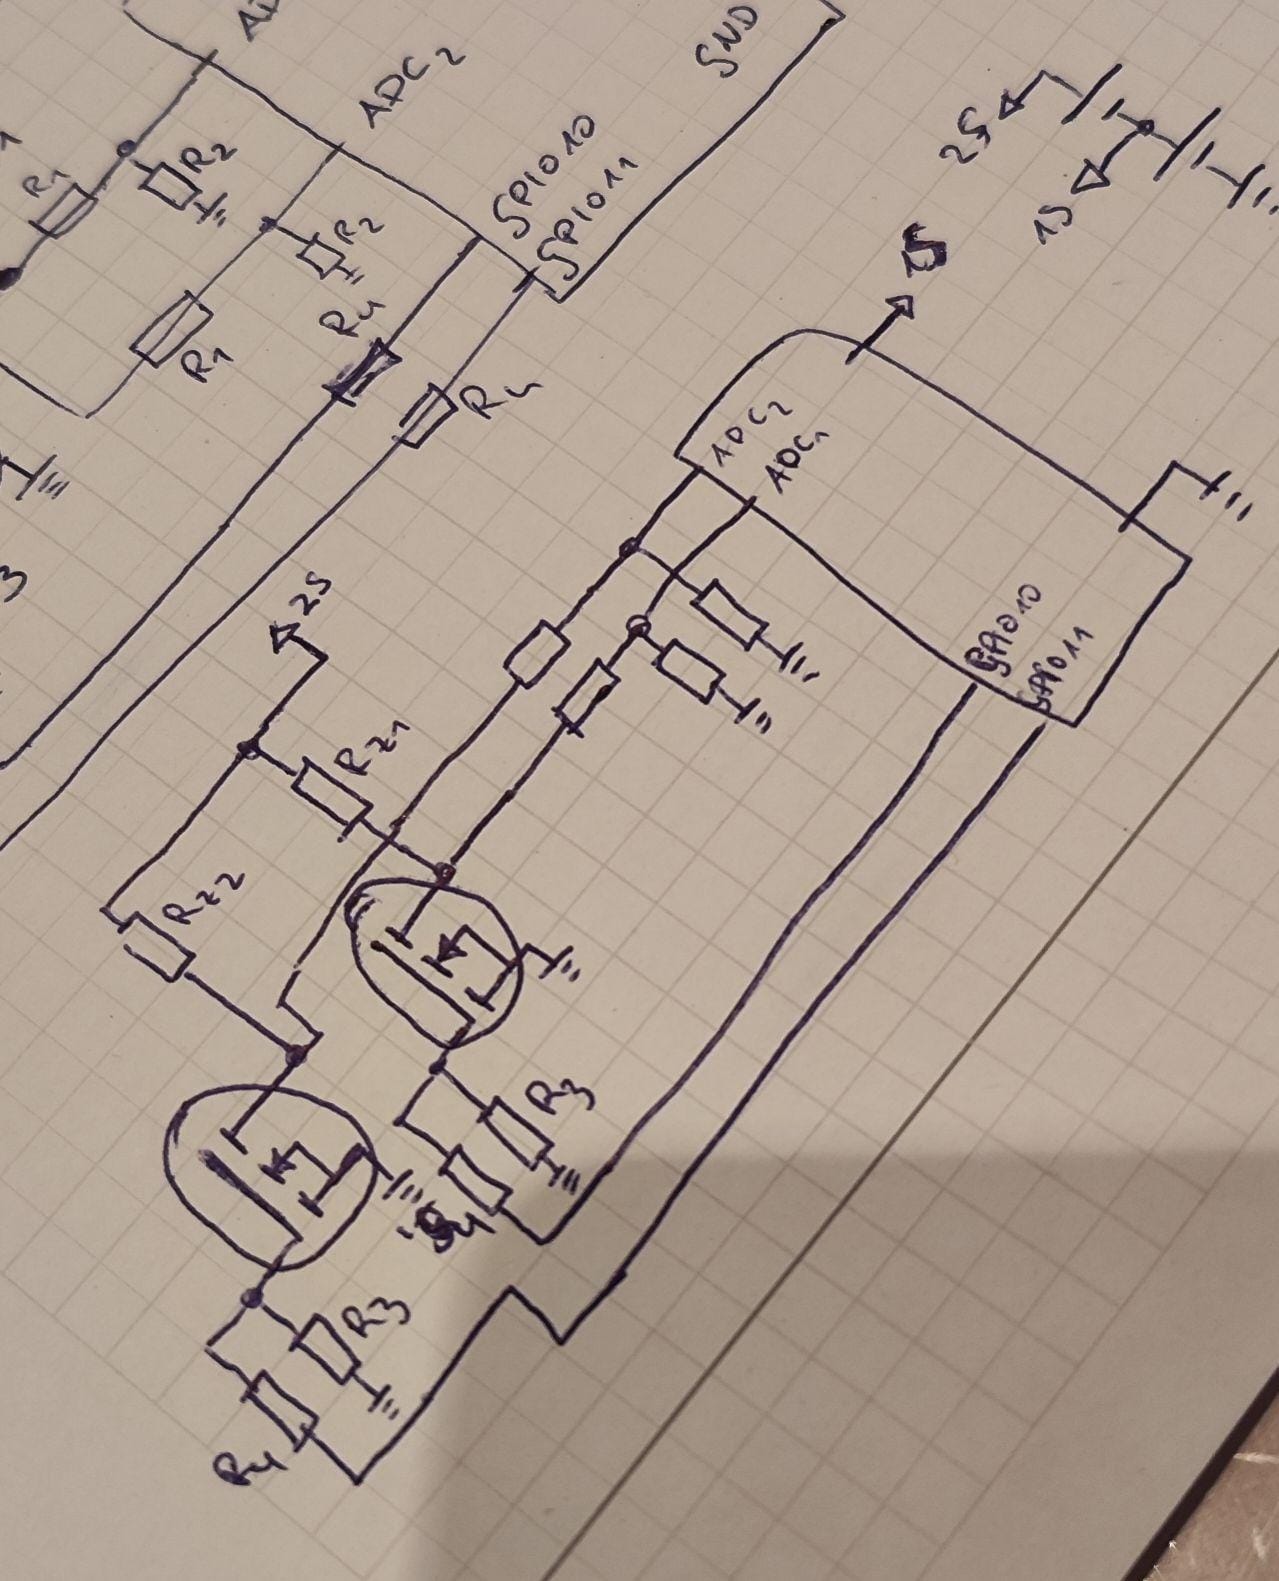 ADC2
GND
GPIO10
GPIO11
R1
R2
R2
R1
R4
R4
2S
1S
1S
ADC2
ADC1
GPIO10
GPIO11
3
2S
RZ1
RZ2
R3
R4
R3
R4